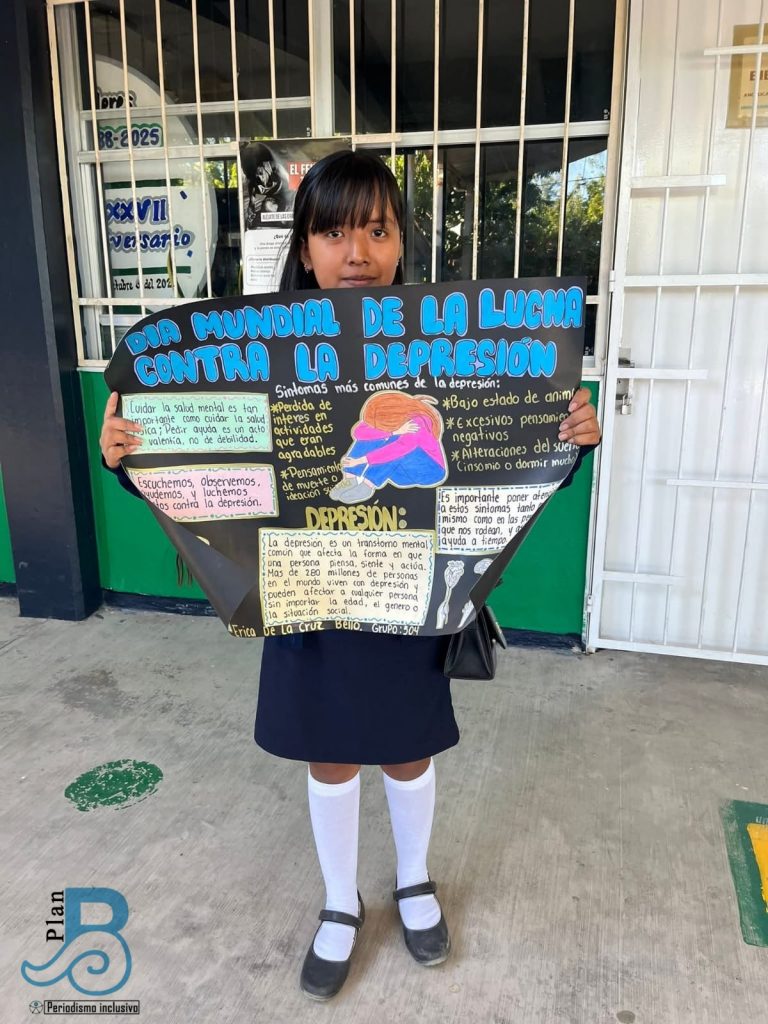 38-2025
XXVII
EL FE
DÍA MUNDIAL DE LA LUCHA
CONTRA LA DEPRESIÓN
Sintomas más comunes de la depresión:
Cuidar la salud mental es tan
importante como cuidar la salud
Pedir ayuda es un acto
valentía, no de debilidad.
Escuchemos, observemos,
ayudemos, y luchemos
contra la depresión.
*Perdida de
interes en
actividades
que eran
agradables
*Pensamiento
de muerte o
ideación
*Bajo estado de
*Excesivos
negativos
*Alteraciones del
(insomio o dormir
Es importante poner
a estos sintomas tanto
mismo como en las
que nos rodean, y
ayuda a tiempo.
DEPRESIÓN:
La depresión, es un transtorno mental
común que afecta la forma en que
una persona piensa, siente y actúa.
Mas de 280 millones de personas
en el mundo viven con depresión y
pueden afectar a cualquier persona
sin importar la edad, el genero o
la situación social.
Erica De La Cruz Bello. Grupo:504
Plan B
Periodismo inclusivo